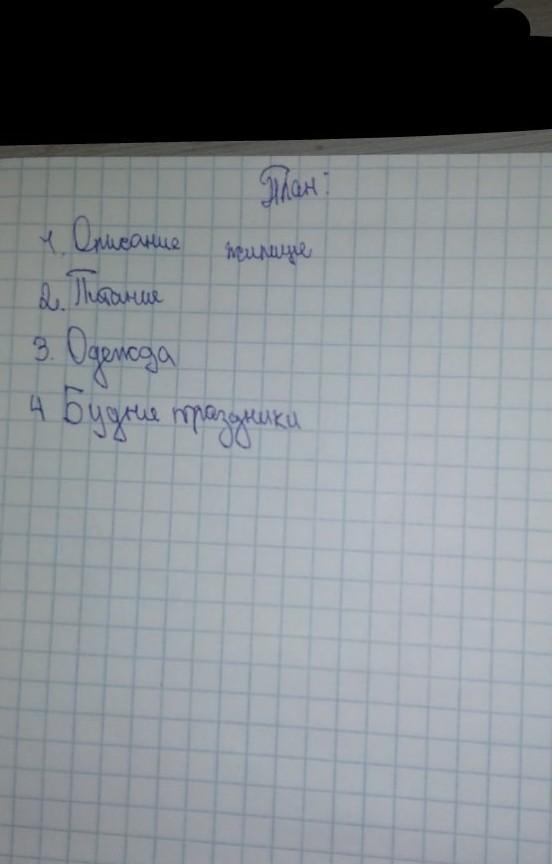 План:
1. Описание жилище
2. Питание
3. Одежда
4 Будни праздники